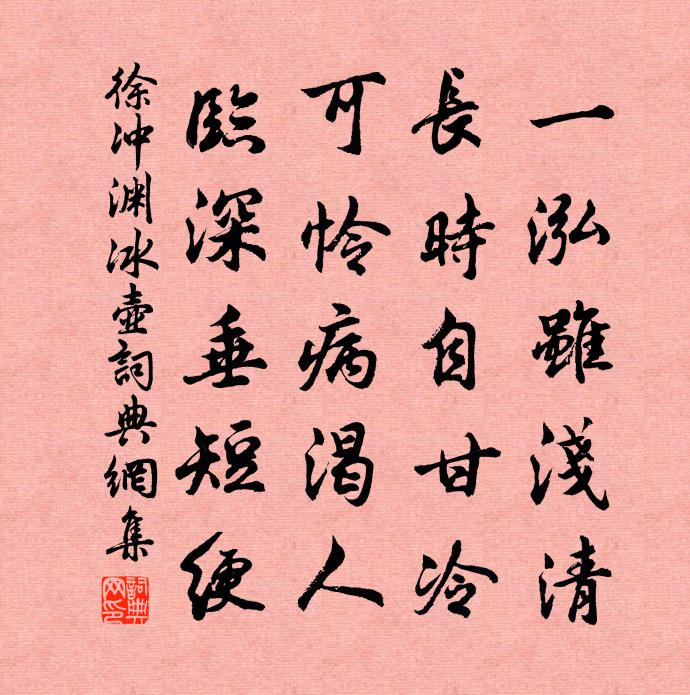 一泓雖淺清
長時自甘冷
可怜病渴人
臨深垂短綆
徐沖渊冰壺詞典網集
詞典網印